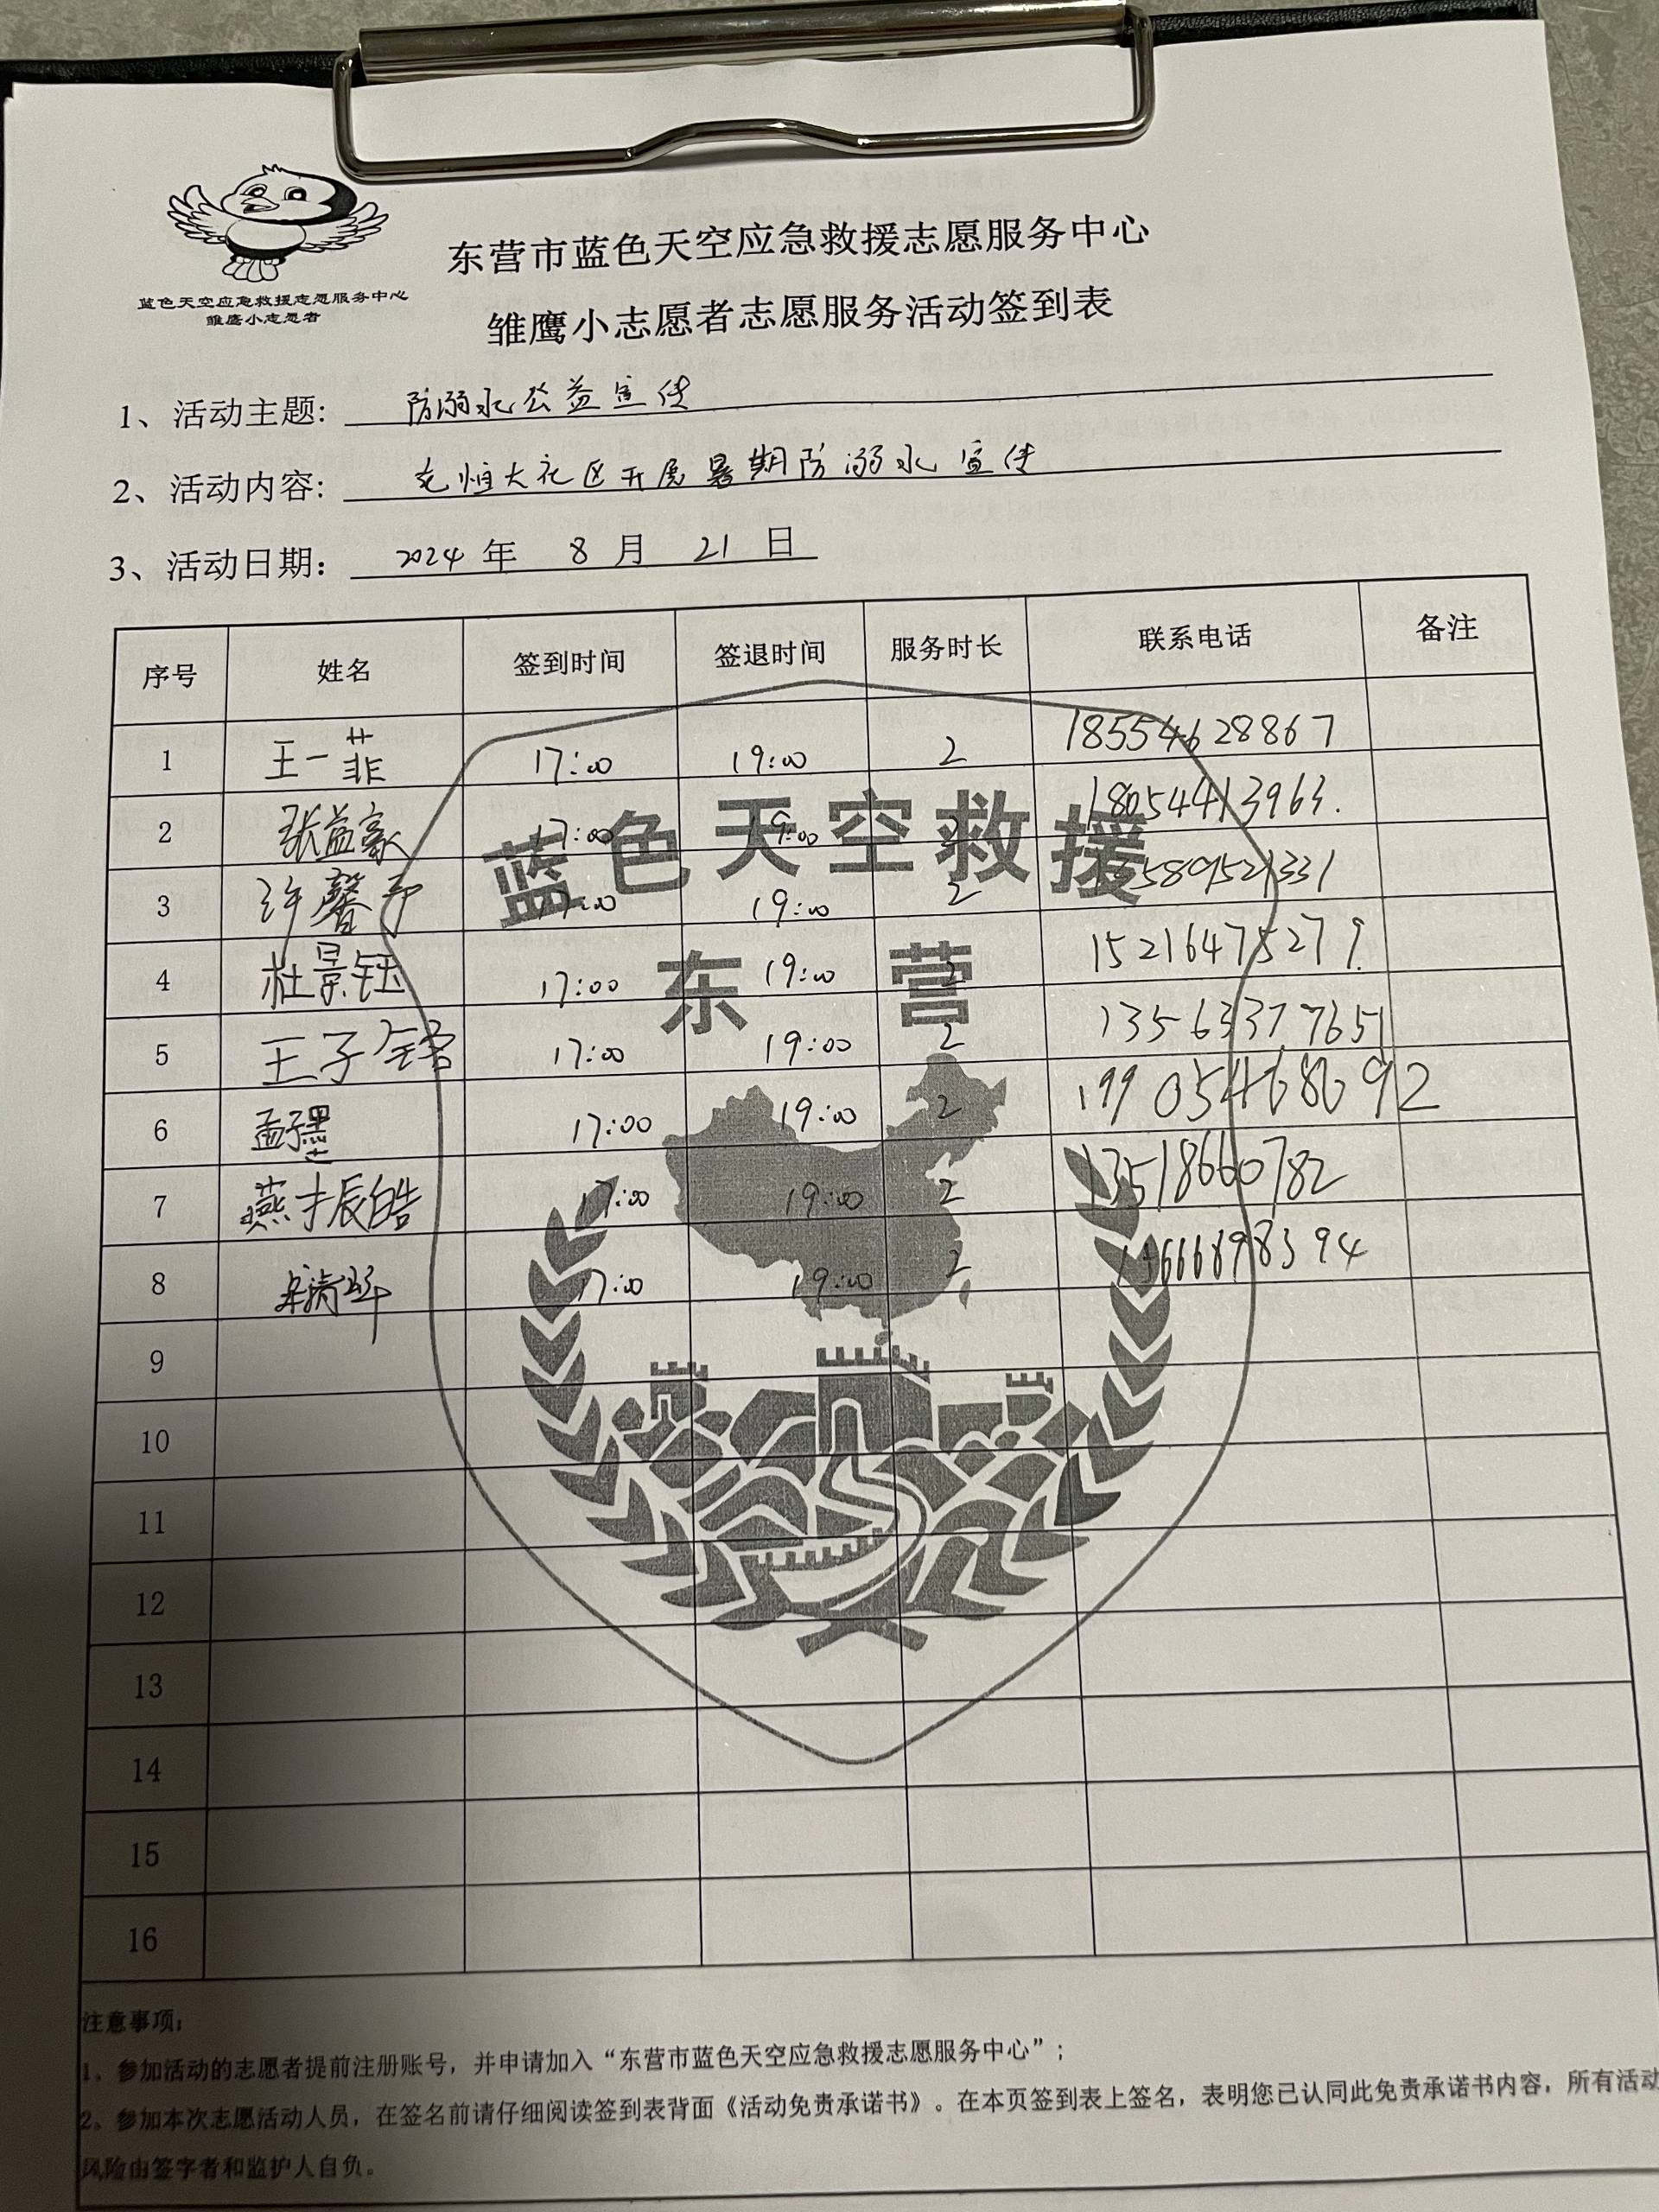 蓝色天空应急救援志愿服务中心
雏鹰小志愿者
东营市蓝色天空应急救援志愿服务中心
雏鹰小志愿者志愿服务活动签到表
1、活动主题: 防溺水公益宣传
2、活动内容: 恒大社区开展暑期防溺水宣传
3、活动日期: 2024 年 8 月 21 日
序号 姓名 签到时间 签退时间 服务时长 联系电话 备注
1 王一菲 17:00 19:00 2 18554628867
2 张益豪 17:00 19:00 2 18054413963.
蓝色天空救援
3 许馨予 17:00 19:00 2 589521331
4 杜景钰 17:00 19:00 2 15216475279
东营
5 王子 17:00 19:00 2 13563377651
6 孟 17:00 19:00 2 19905468692
7 燕振皓 17:00 19:00 2 13518660782
8 17:00 19:00 2 666898394
9
10
11
12
13
14
15
16
注意事项:
1、参加活动的志愿者提前注册账号，并申请加入“东营市蓝色天空应急救援志愿服务中心”;
2、参加本次志愿活动人员，在签名前请仔细阅读签到表背面《活动免责承诺书》。在本页签到表上签名，表明您已认同此免责承诺书内容，所有活动
风险由签字者和监护人自负。